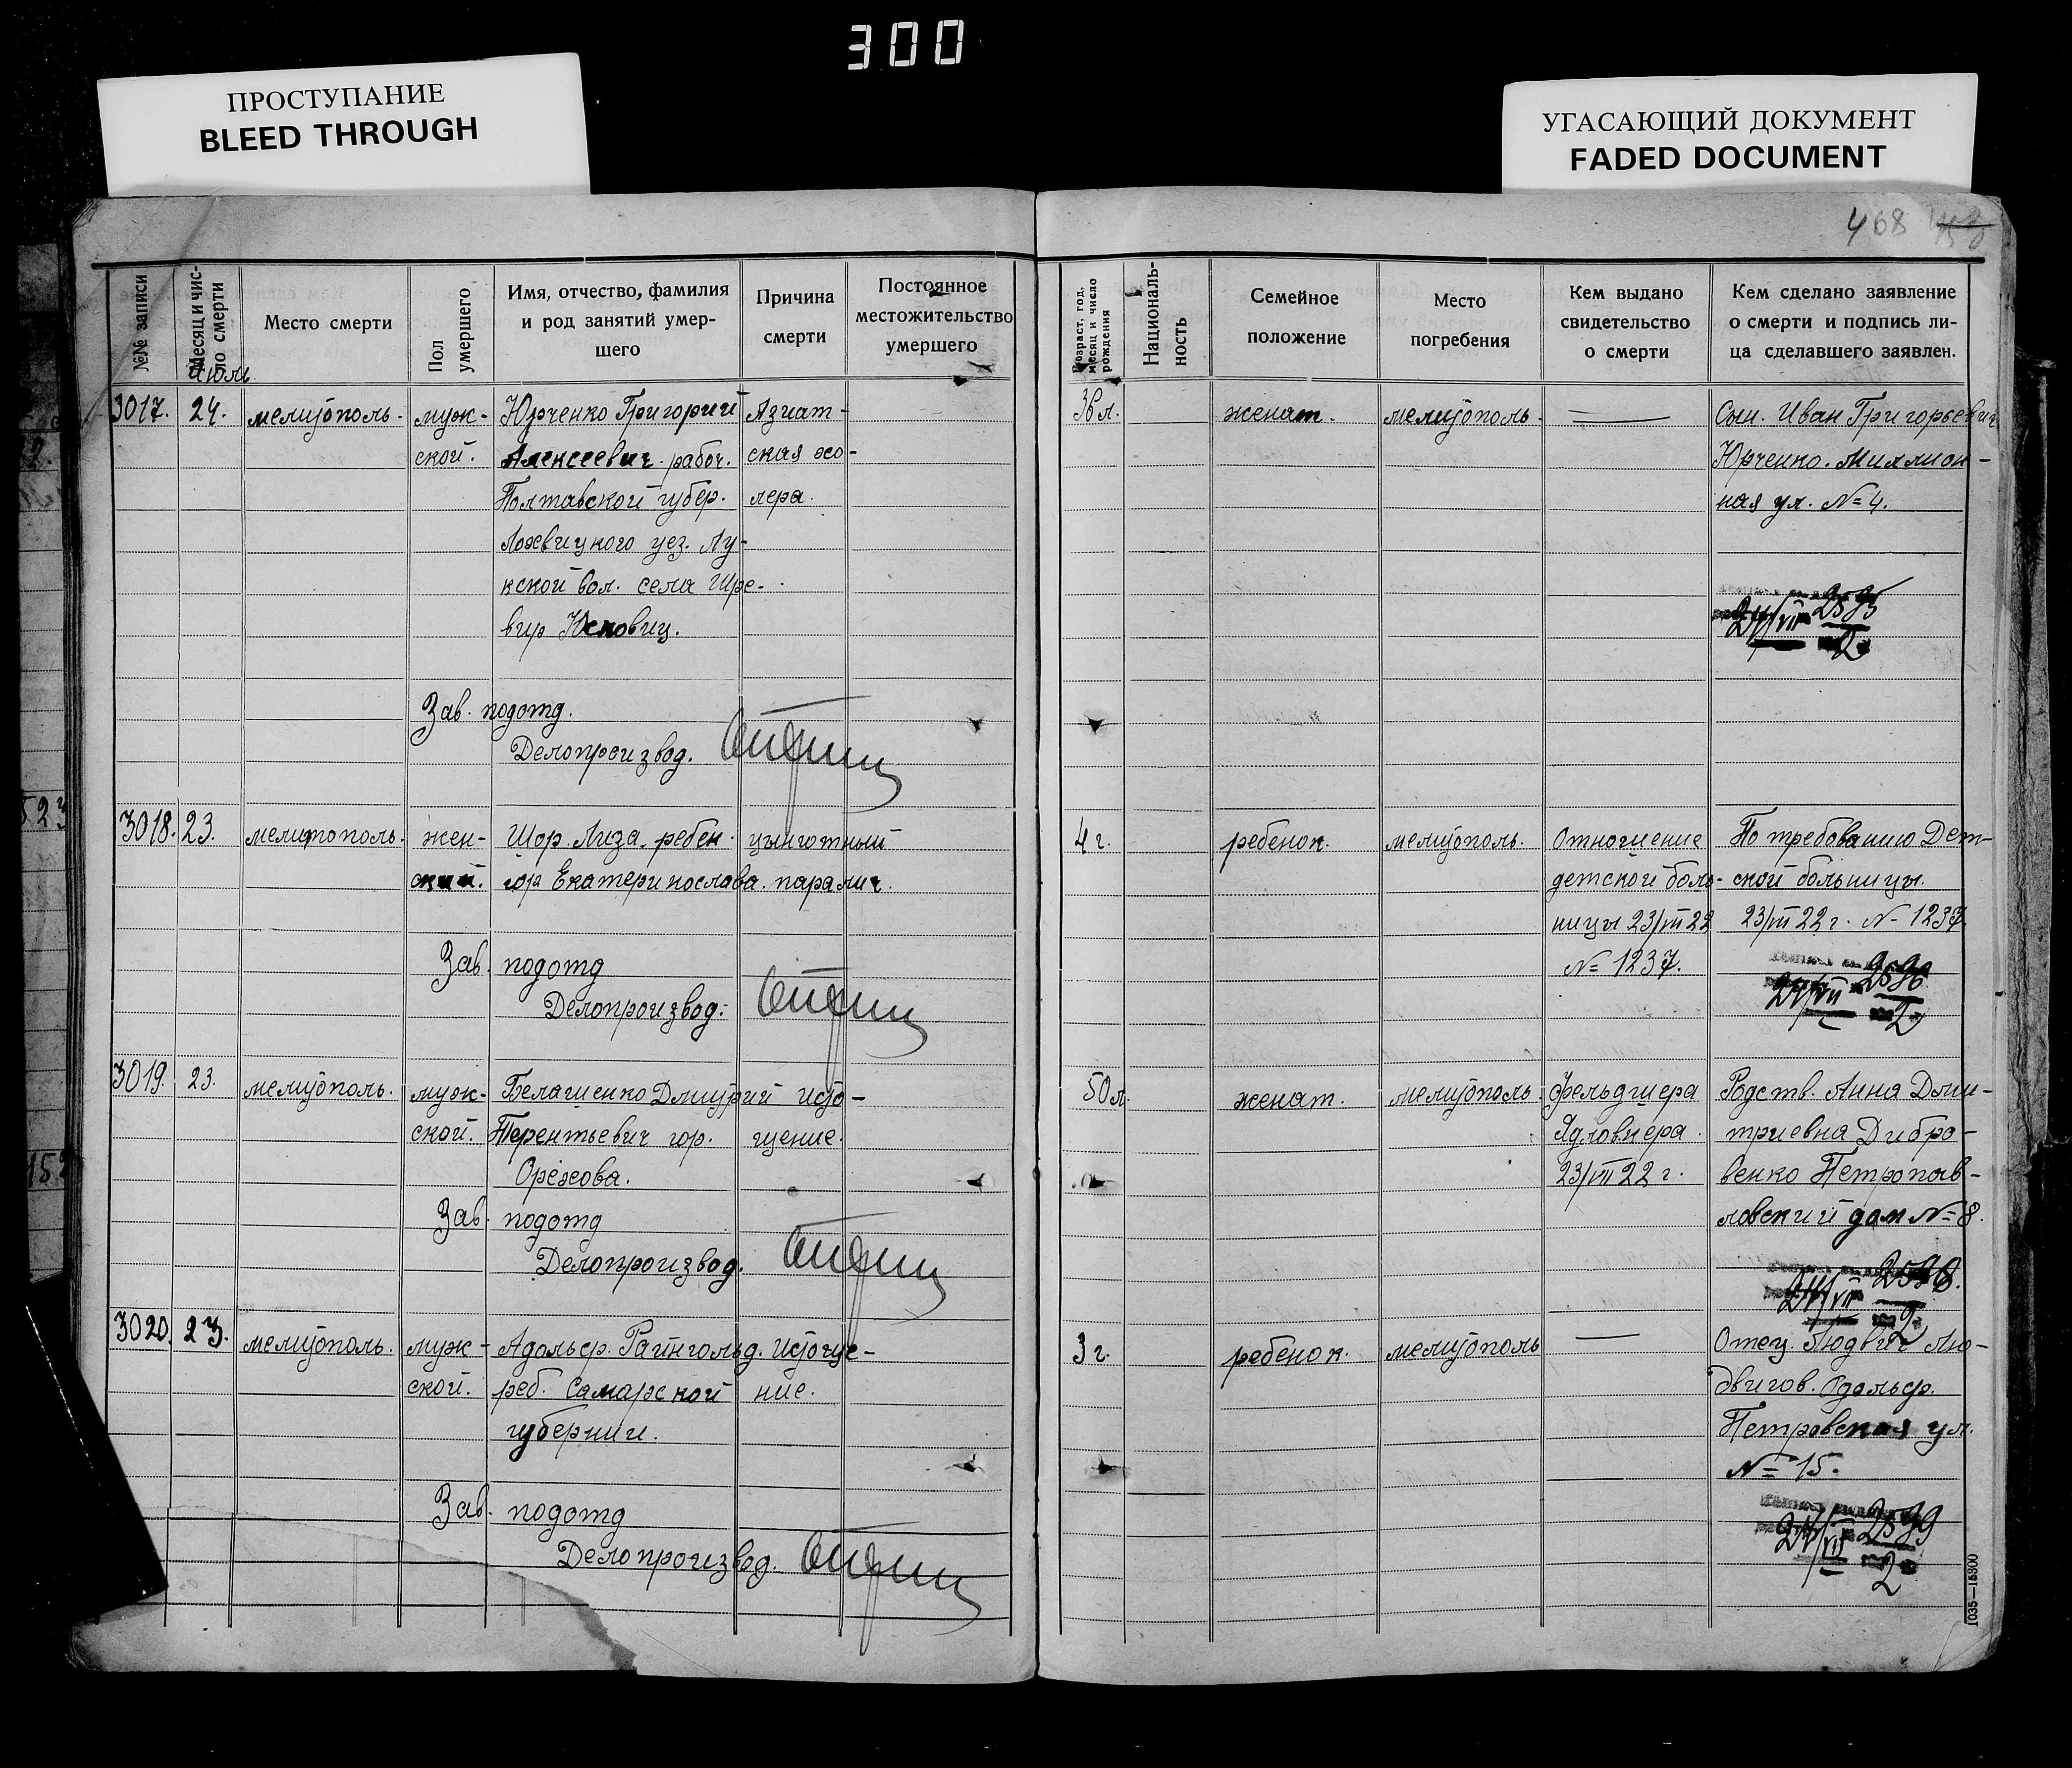 300
ПРОСТУПАНИЕ
BLEED THROUGH
УГАСАЮЩИЙ ДОКУМЕНТ
FADED DOCUMENT
468
№№ записи
Месяц и чис-
ло смерти
Место смерти
Пол
умершего
Имя, отчество, фамилия
и род занятий умер-
шего
Причина
смерти
Постоянное
местожительство
умершего
Возраст, год,
месяц и число
рождения
Националь-
ность
Семейное
положение
Место
погребения
Кем выдано
свидетельство
о смерти
Кем сделано заявление
о смерти и подпись ли-
ца сделавшего заявлен.
Июль
3017. 24. мелитополь. муж- Юрченко Григорий Азиат-
ской. Алексеевич. рабоч. ская хо-
Полтавской губер. лера.
Лохвицкого уез. Лу-
кской вол. села
Юсковиц.
Зав. подотд.
Делопроизвод.
женат. мелитополь. Сын. Иван Григорьевич
Юрченко. Миллион-
ная ул. № 4.
24/VII 2595
2
3018. 23. мелитополь. жен- Шор. Лиза. ребен. цынготный
ский. гор Екатеринослава. паралич.
Зав. подотд
Делопроизвод.
4 г. ребенок. мелитополь. Отношение По требованию Дет-
детской боль- ской больницы.
ницы 23/VII 22 23/VII 22 г. № 1237.
№ 1237.
24/VII 2596
2
3019. 23. мелитополь. муж- Белашенко Дмитрий исто-
ской. Терентьевич гор. щение.
Орехова.
Зав. подотд
Делопроизвод.
50 л. женат. мелитополь. Фельдшера Родств. Анна Дми-
триевна Дибро-
23/VII 22 г. венко Петропав-
ловский дом № 8.
24/VII 2598.
2
3020. 23. мелитополь. муж- Адольф. Райнгольд. Истоще-
ской. реб. Самарской ние.
губернии.
Зав. подотд
Делопроизвод.
3 г. ребенок. мелитополь Отец. Людвиг Лю-
двигов. Адольф.
Петровская ул.
№ 15.
24/VII 2599
2
1035—15300